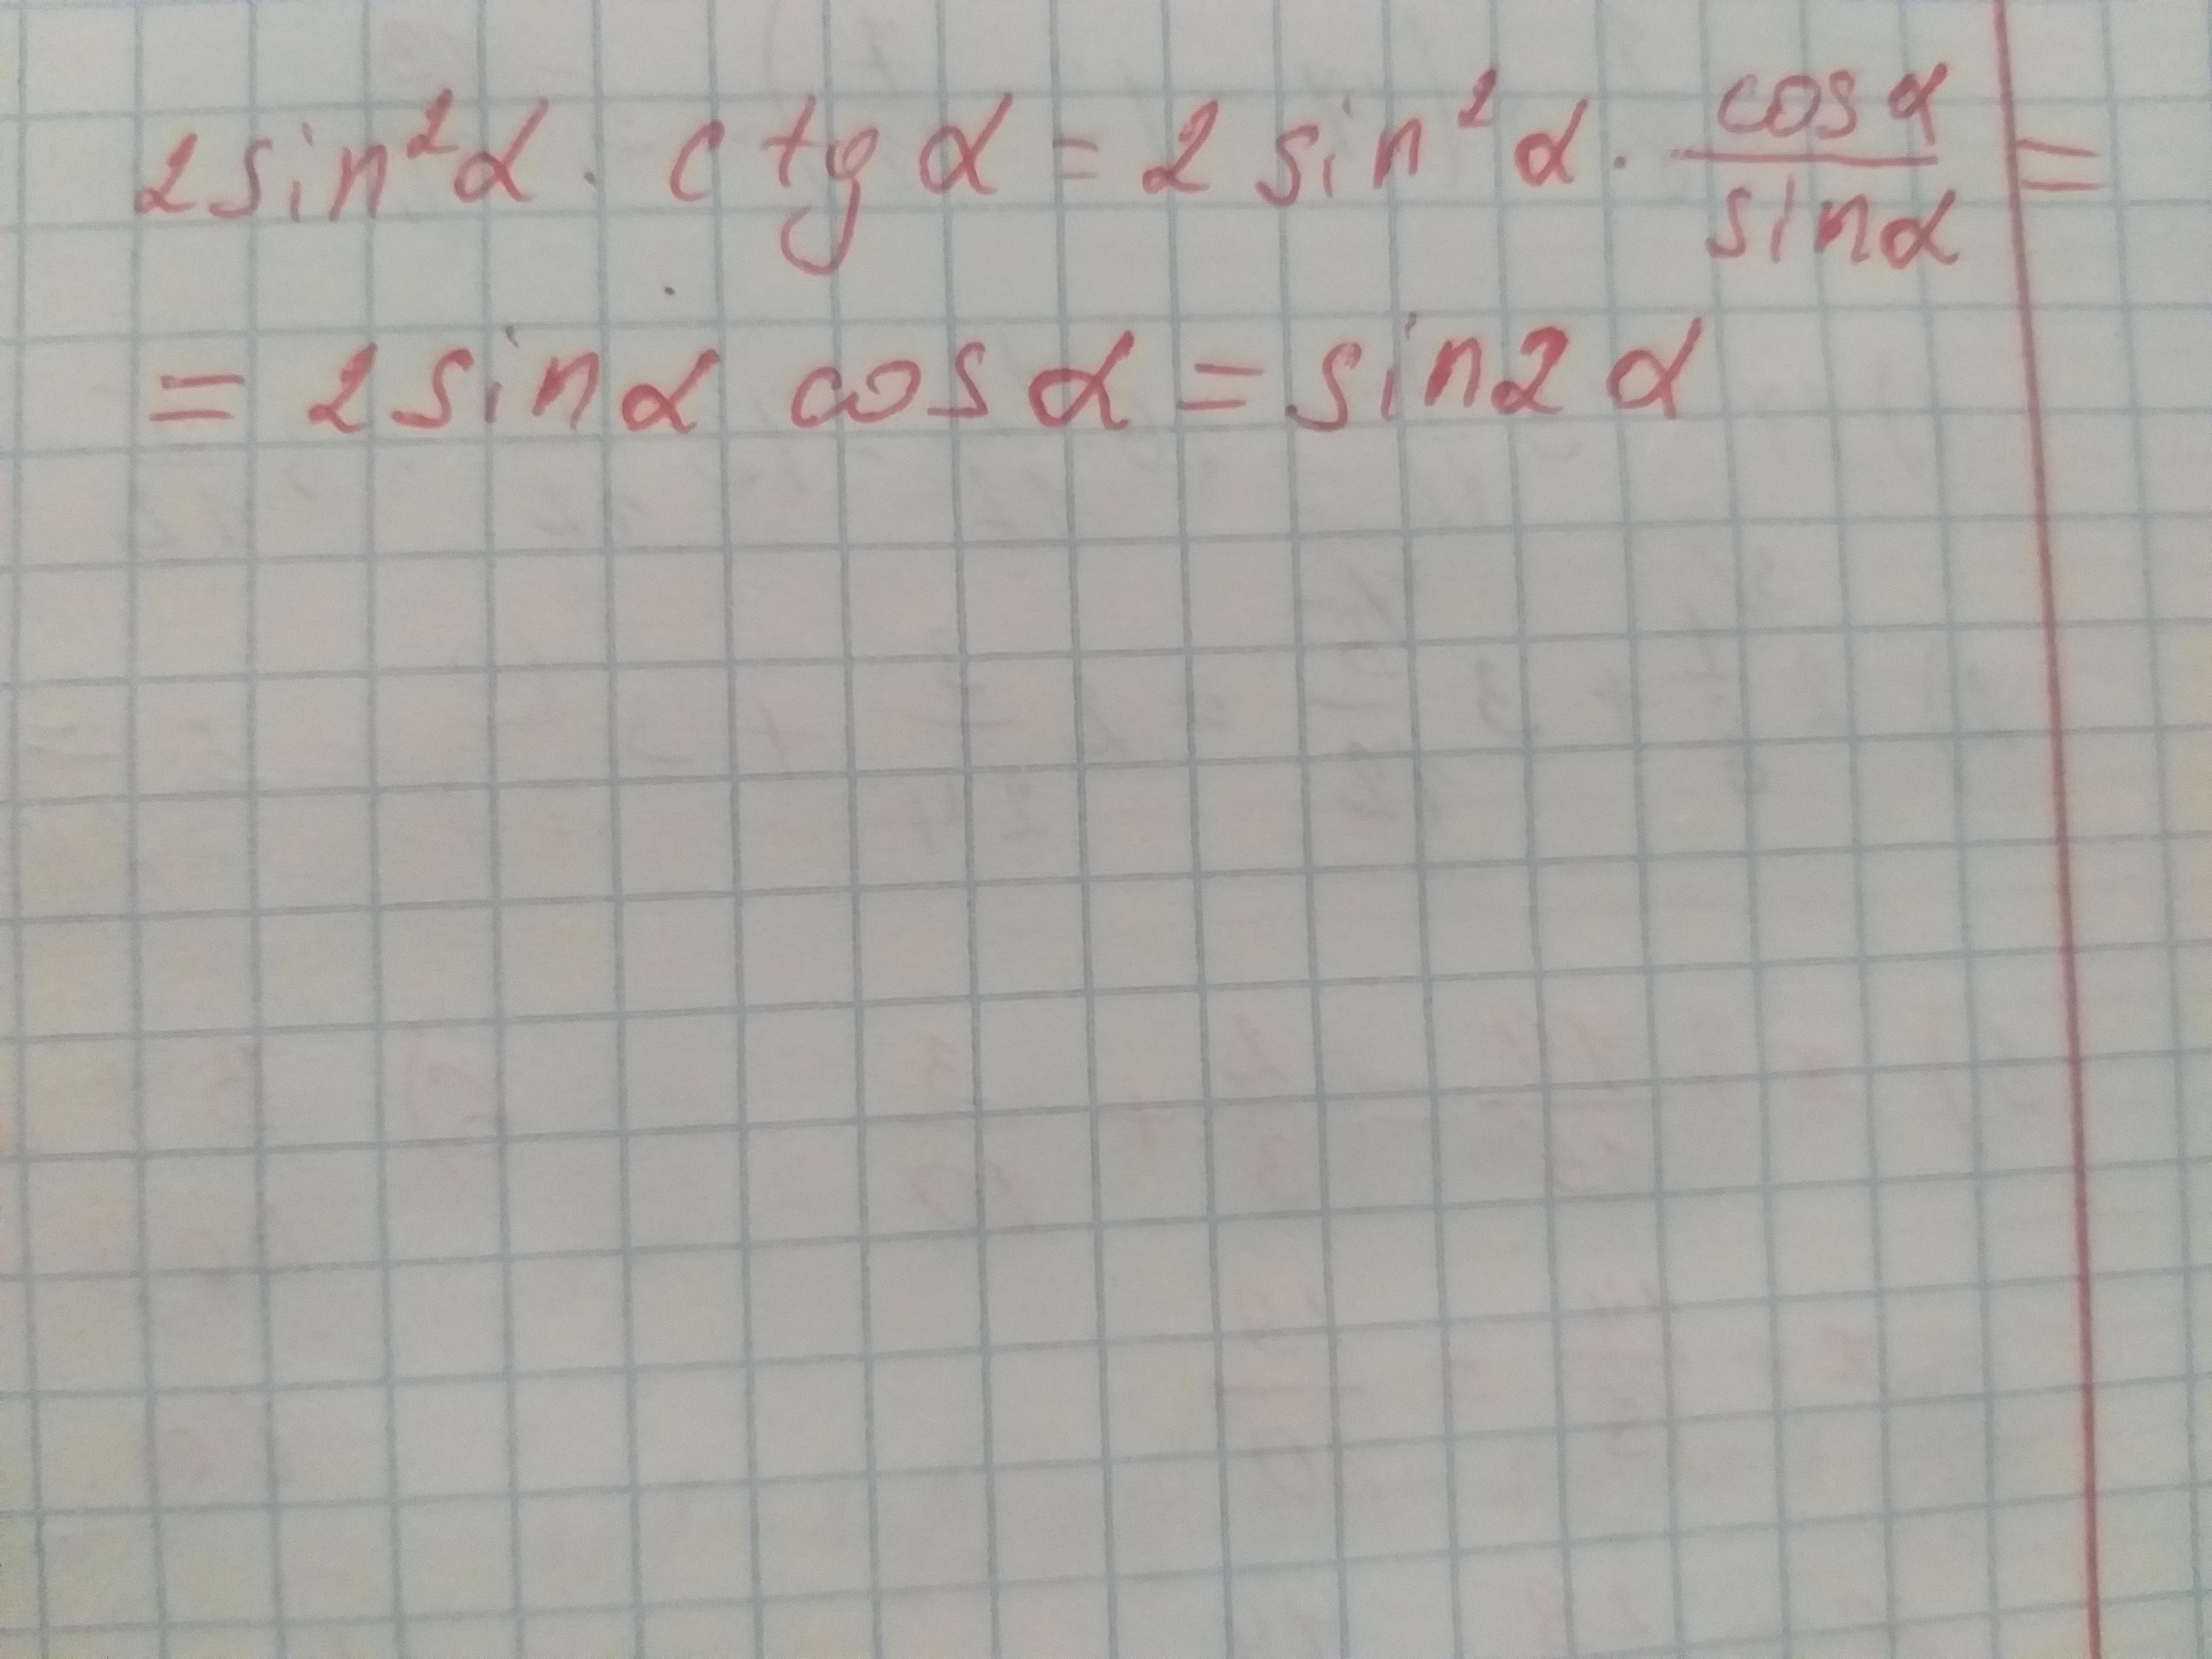 2sin²α · ctg α = 2 sin² α · cos α / sin α =
= 2 sin α cos α = sin 2 α